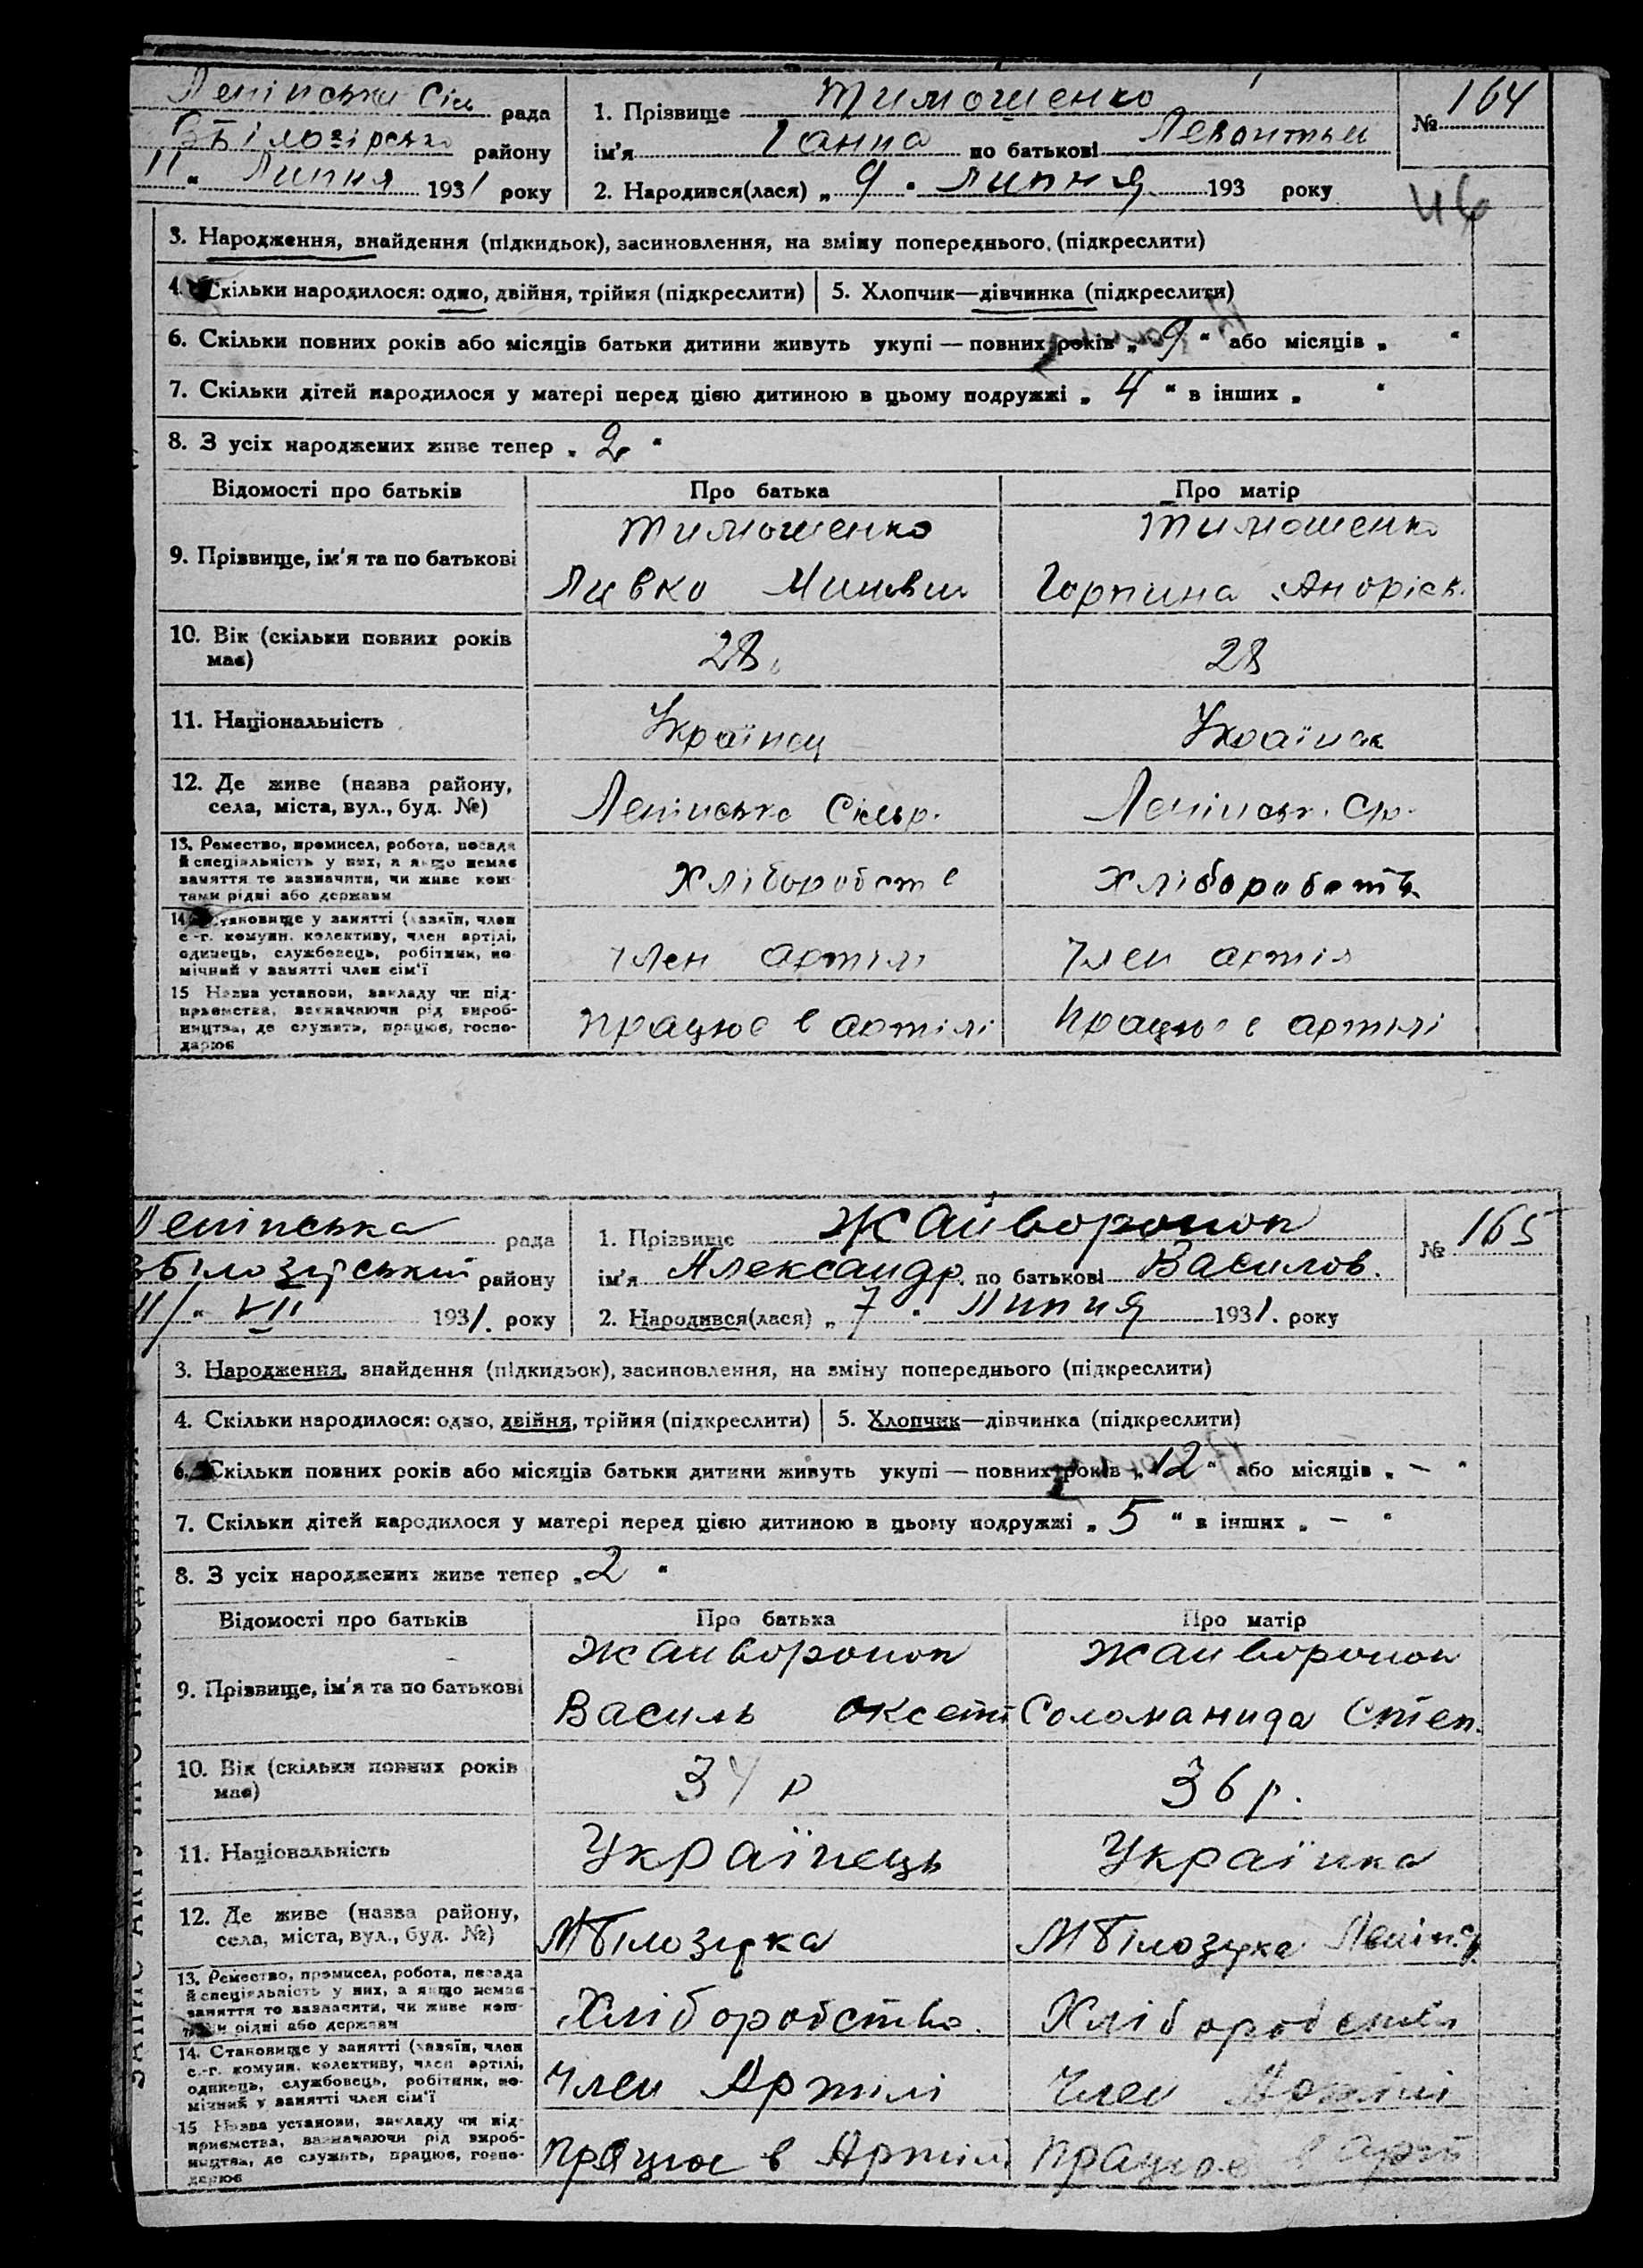 Ленінська Сіль рада
Білозірсько району
11 " Липня 1931 року
1. Прізвище Тимошенко
ім'я Ганна по батькові
2. Народився(лася) „ 9 " Липня 193 року
№ 164
46
3. Народження, знайдення (підкидьок), засиновлення, на зміну попереднього, (підкреслити)
4. Скільки народилося: одно, двійня, трійня (підкреслити) 5. Хлопчик—дівчинка (підкреслити)
6. Скільки повних років або місяців батьки дитини живуть укупі — повних років „ 9 " або місяців „ "
7. Скільки дітей народилося у матері перед цією дитиною в цьому подружжі „ 4 " в інших „ "
8. З усіх народжених живе тепер „ 2 "
Відомості про батьків Про батька Про матір
9. Прізвище, ім'я та по батькові
Тимошенко Тимошенко
Горпина
10. Вік (скільки повних років має) 28 28
11. Національність Українец Українк
12. Де живе (назва району, села, міста, вул., буд. №) Ленінська Сільр. Ленінськ. Ср.
13. Ремество, промисел, робота, посада й спеціяльність у них, а якщо немає заняття то зазначити, чи живе коштами рідні або держави Хліборобств Хліборобств
14. Становище у занятті (хазяїн, член с.-г. комуни. колективу, член артілі, одинець, службовець, робітник, помічний у занятті член сім'ї член артілі Член артіл
15 Назва установи, закладу чи підприємства, зазначаючи рід виробництва, де служить, працює, господарює Працює в артілі Працює в артілі
Ленінська рада
Білозірський району
11/ " VII 1931. року
1. Прізвище Жайворонон
ім'я Александр. по батькові Василов.
2. Народився(лася) „ 7 " Липня 1931. року
№ 165
3. Народження, знайдення (підкидьок), засиновлення, на зміну попереднього (підкреслити)
4. Скільки народилося: одно, двійня, трійня (підкреслити) 5. Хлопчик—дівчинка (підкреслити)
6. Скільки повних років або місяців батьки дитини живуть укупі — повних років „ 12 " або місяців „ – "
7. Скільки дітей народилося у матері перед цією дитиною в цьому подружжі „ 5 " в інших „ – "
8. З усіх народжених живе тепер „ 2 "
Відомості про батьків Про батька Про матір
9. Прізвище, ім'я та по батькові
Жайворонон Жайворонон
Василь Соломанида Степ.
10. Вік (скільки повних років має) 34 р 36 р.
11. Національність Українець Українка
12. Де живе (назва району, села, міста, вул., буд. №) МБілозірка МБілозірка
13. Ремество, промисел, робота, посада й спеціяльність у них, а якщо немає заняття то зазначити, чи живе коштами рідні або держави Хліборобство. Хліборобство
14. Становище у занятті (хазяїн, член с.-г. комуни. колективу, член артілі, одинець, службовець, робітник, помічний у занятті член сім'ї Член Артілі Член Артілі
15 Назва установи, закладу чи підприємства, зазначаючи рід виробництва, де служить, працює, господарює Працює в Артілі Працює в Арті